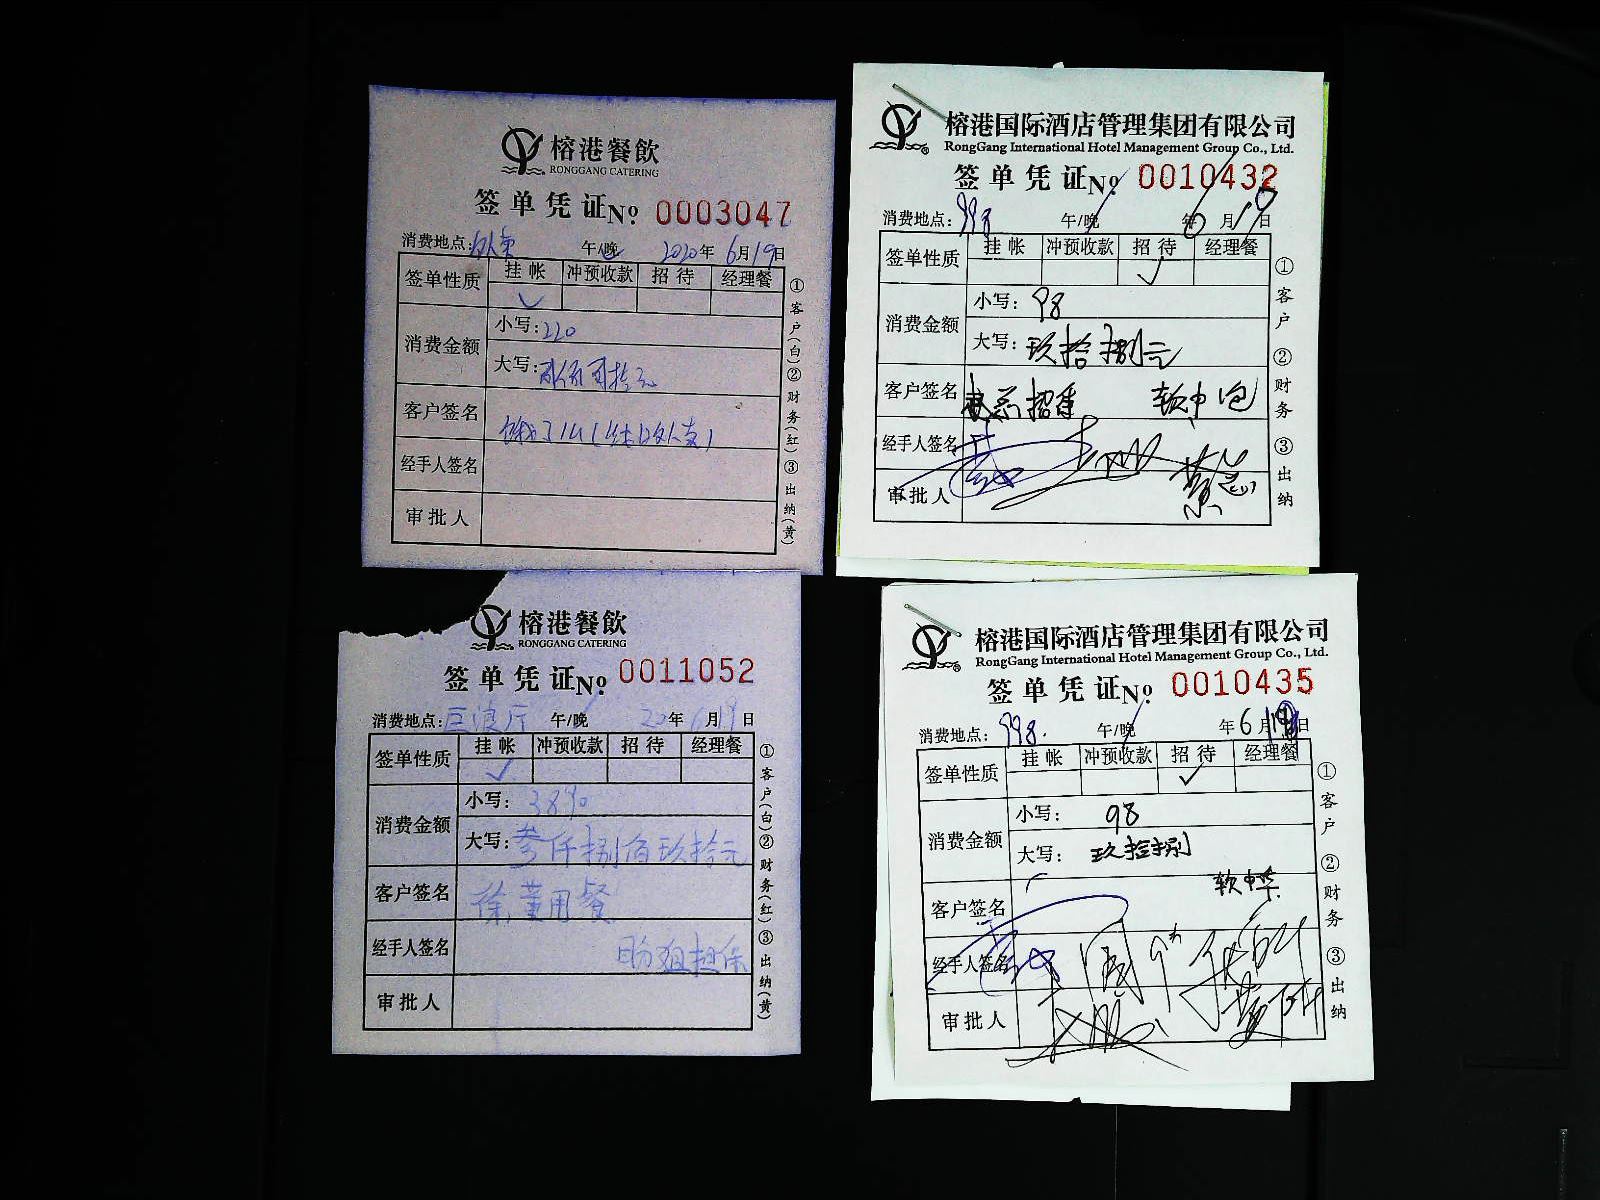 榕港餐飲
RONGGANG CATERING
签单凭证No. 0003047
消费地点:外卖 午/晚 2020年6月19日
签单性质 挂帐 冲预收款 招待 经理餐
消费金额 小写:220
大写:
客户签名
经手人签名
审批人
①客户(白)②财务(红)③出纳(黄)
榕港国际酒店管理集团有限公司
RongGang International Hotel Management Group Co., Ltd.
签单凭证No. 0010432
消费地点:998 午/晚 年6月 日
签单性质 挂帐 冲预收款 招待 经理餐
消费金额 小写:98
大写:玖拾捌元
客户签名 招待 软中
经手人签名
审批人
①客户 ②财务 ③出纳
榕港餐飲
RONGGANG CATERING
签单凭证No. 0011052
消费地点:巨浪厅 午/晚 20年6月19日
签单性质 挂帐 冲预收款 招待 经理餐
消费金额 小写:3890
大写:叁仟捌佰玖拾元
客户签名 徐董用餐
经手人签名 担保
审批人
①客户(白)②财务(红)③出纳(黄)
榕港国际酒店管理集团有限公司
RongGang International Hotel Management Group Co., Ltd.
签单凭证No. 0010435
消费地点:998. 午/晚 年6月 日
签单性质 挂帐 冲预收款 招待 经理餐
消费金额 小写:98
大写:玖拾捌
客户签名 软中华
经手人签名
审批人
①客户 ②财务 ③出纳